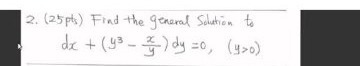 2. (25pts) Find the general solution to
dx + (y³ - x/y) dy = 0, (y>0)